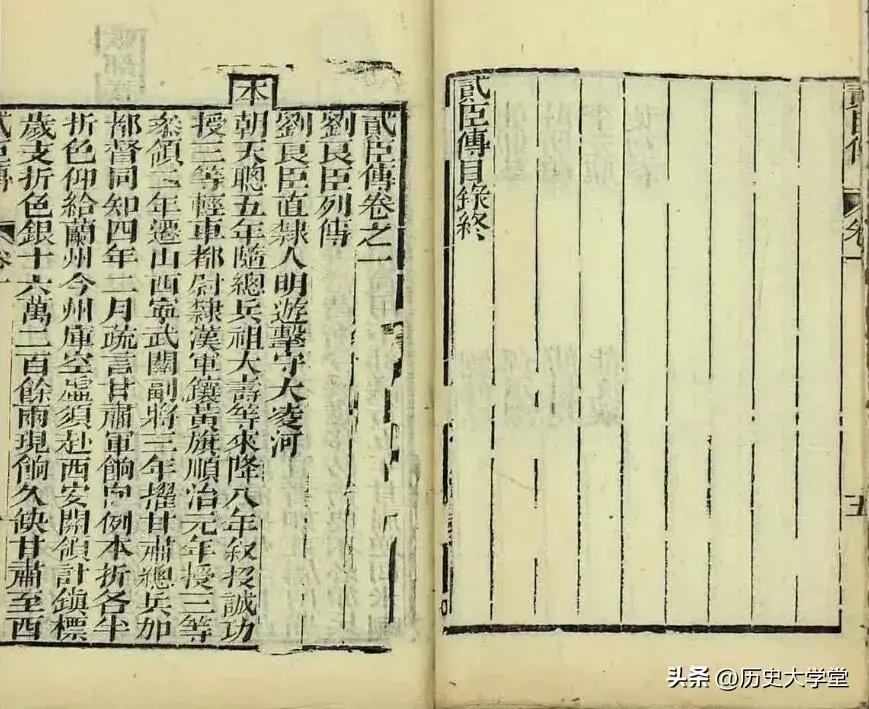 貳臣傳 卷一 五
貳臣傳目錄終
貳臣傳卷之一
劉良臣列傳
劉良臣直隸人明遊擊守大凌河
本
朝天聰五年隨總兵祖大壽等來降八年敘投誠功
授三等輕車都尉隸漢軍鑲黃旗順治元年授三等
參領二年遷山西寧武關副將三年擢甘肅總兵加
都督同知四年二月疏言甘肅軍餉向例本折各半
折色仰給蘭州今州庫空虛須赴西安關領計鎮標
歲支折色銀十六萬二百餘兩現餉久缺甘肅至西
貳臣傳 卷一
头条 @历史大学堂